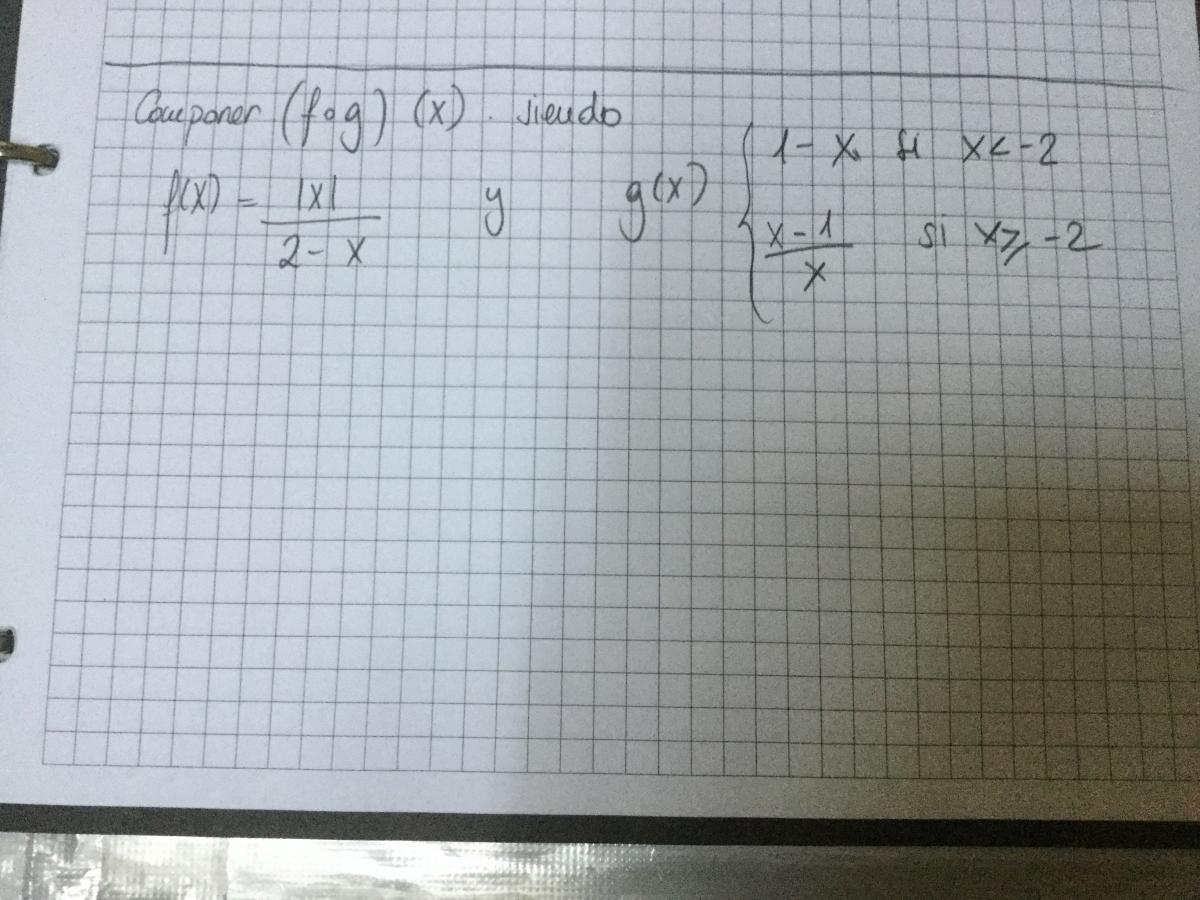 Componer (f∘g) (x). siendo
f(x) = |x| / 2 - x y g(x) { 1 - x si x < -2
x - 1 / x si x ≥ -2